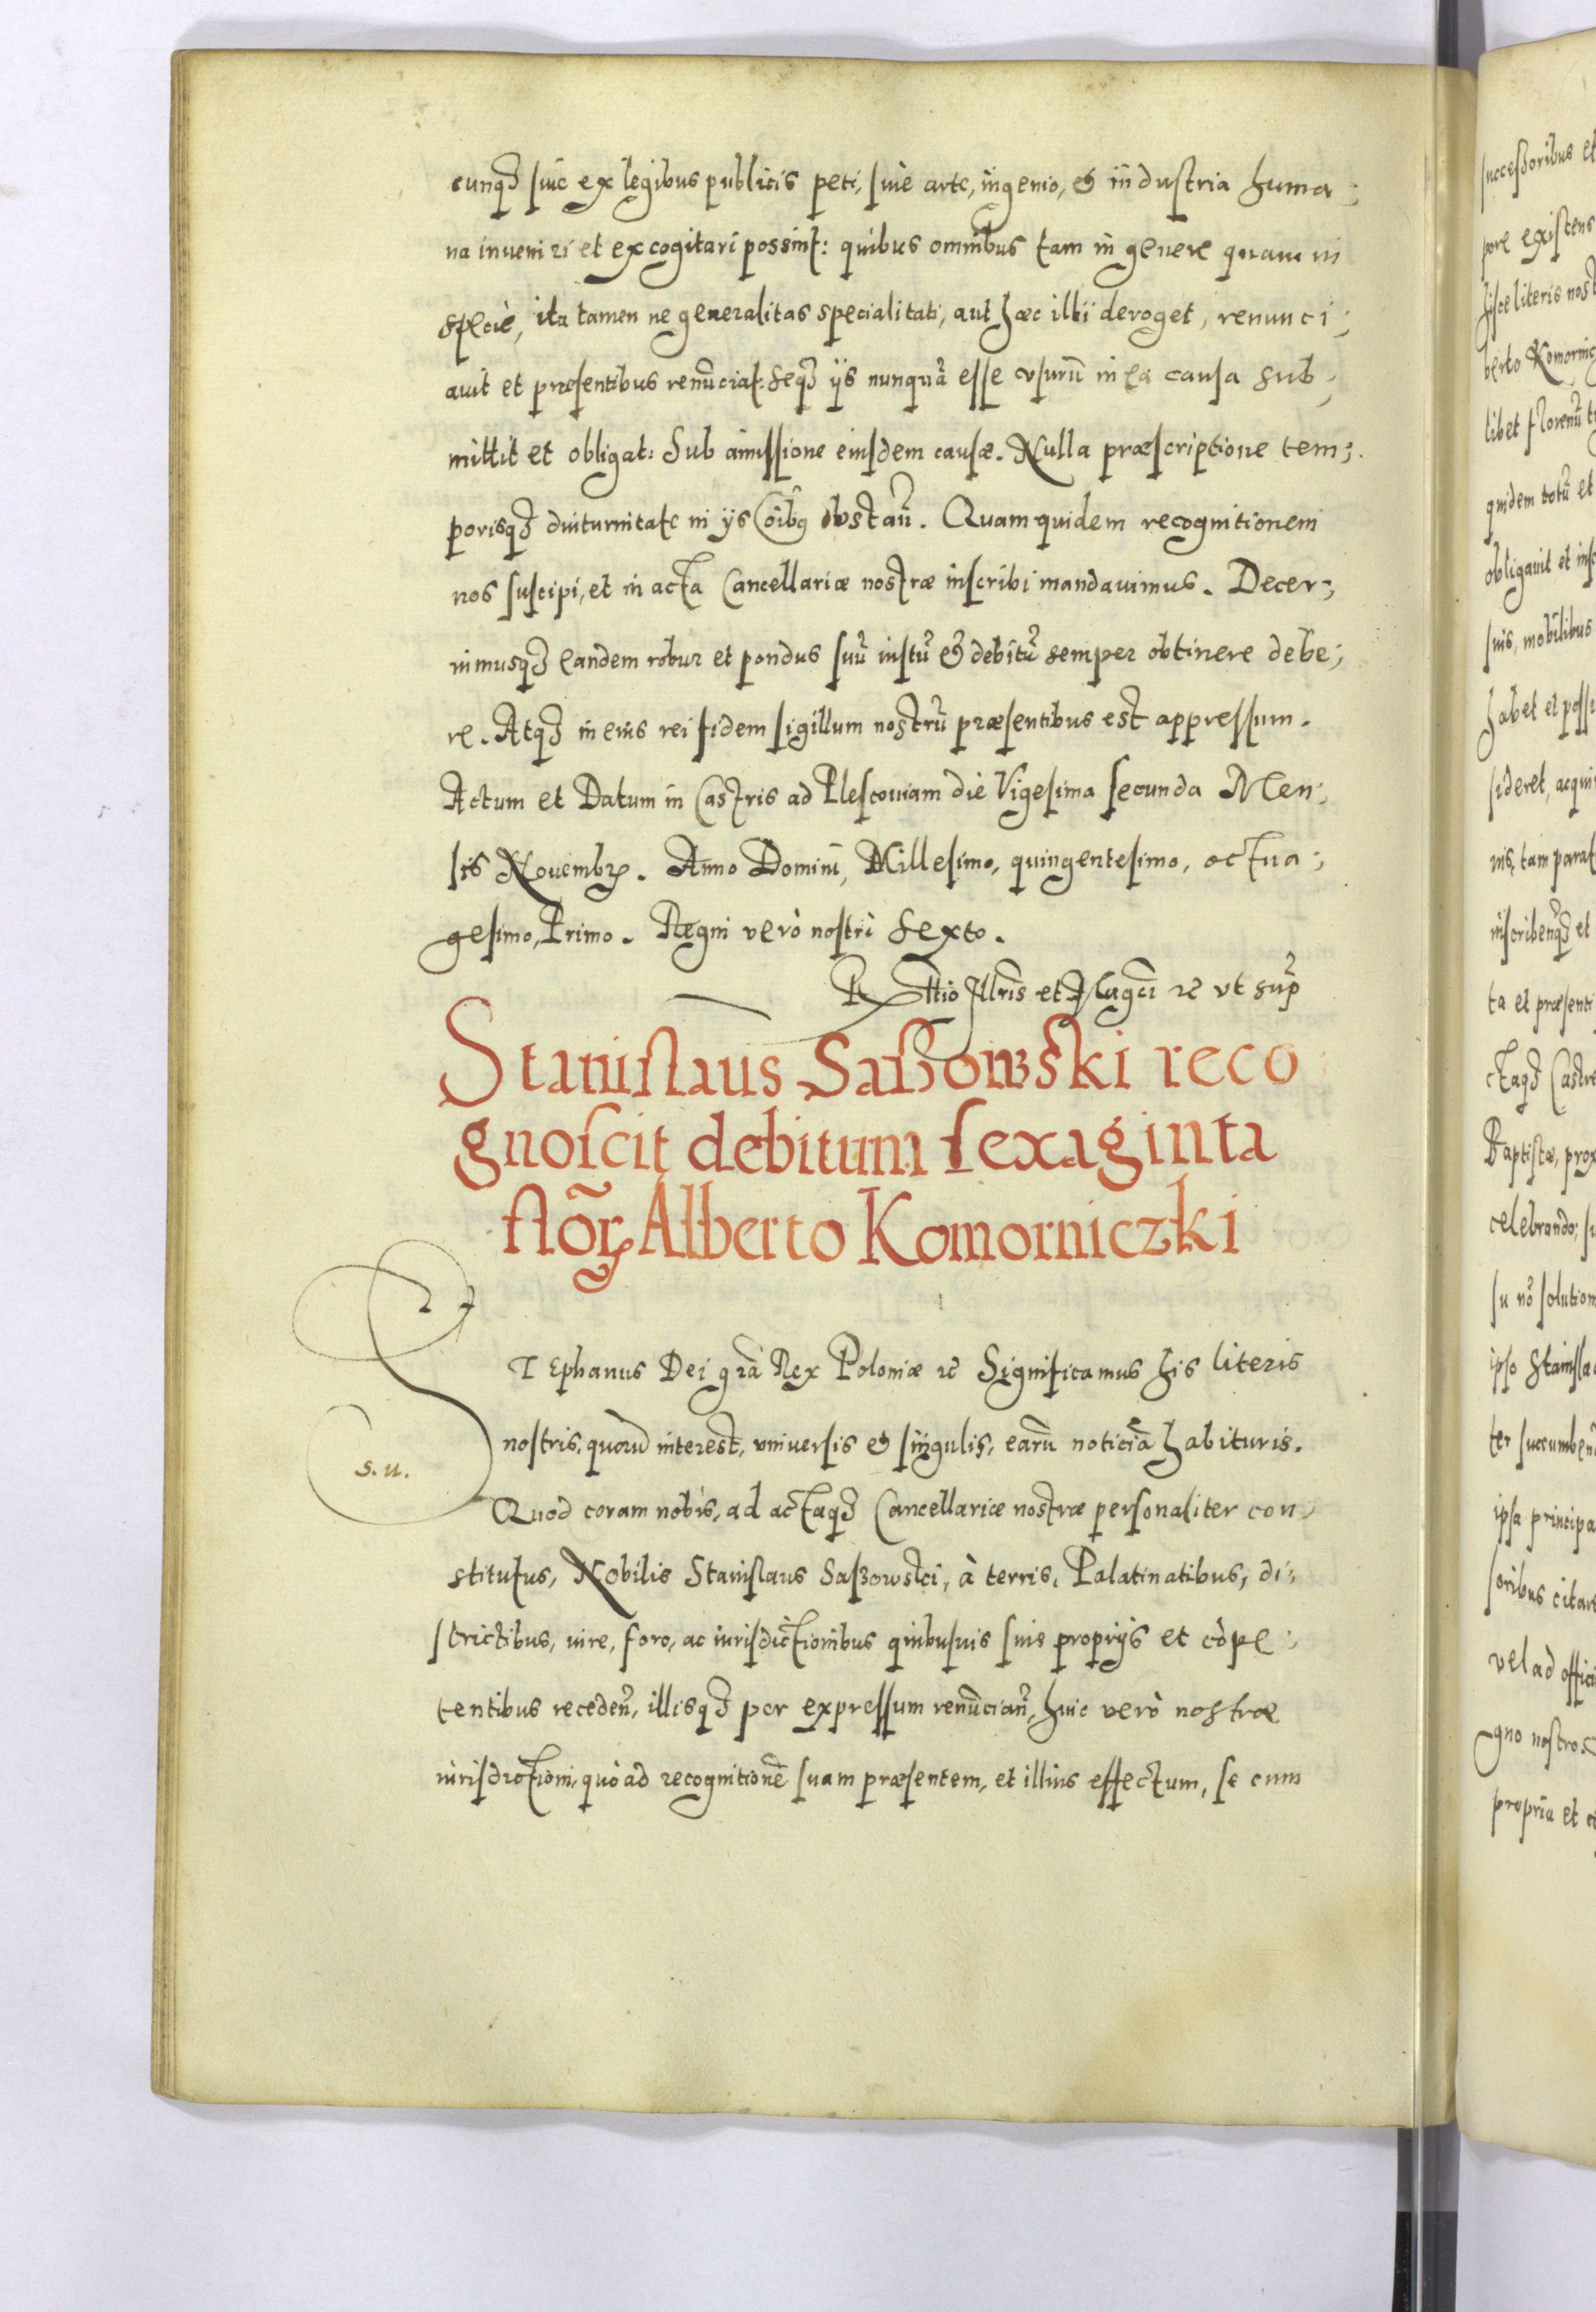 cunq₃ siue ex legibus publicis peti, siue arte, ingenio, & industria huma⸗
na inueniri et excogitari possint: quibus omnibus tam in genere quam in
specie, ita tamen ne generalitas specialitati, aut hæc illi deroget, renunci⸗
auit et præsentibus renūciat: seq₃ ijs nunquā esse vsurū in ea causa sub⸗
mittit et obligat: Sub amissione eiusdem causæ. Nulla præscriptione tem⸗
porisq₃ diuturnitate in ijs oībq obstań. Quam quidem recognitionem
nos suscipi, et in acta Cancellariæ nostræ inscribi mandauimus. Decer⸗
nimusq₃ eandem robur et pondus suū iustū & debitū semper obtinere debe⸗
re. Atq₃ in eius rei fidem sigillum nostrū præsentibus est appressum.
Actum et Datum in Castris ad Plescouiam die Vigesima secunda Men⸗
sis Nouembꝝ. Anno Domini, Millesimo, quingentesimo, octua⸗
gesimo, Primo. Regni verò nostri Sexto.
Rttio Illris et Magci ꝛc vt sup
Stanislaus Saßowski reco
gnoscit debitum sexaginta
flōꝝ Alberto Komorniczki
STephanus Dei grā Rex Poloniæ ꝛc Significamus his literis
nostris, quorū interest, vniuersis & singulis, earū noticiā habituris.
s. u.
Quod coram nobis, ad actaq₃ Cancellariæ nostræ personaliter con⸗
stitutus, Nobilis Stanislaus Saßowski, à terris, Palatinatibus, di⸗
strictibus, iure, foro, ac iurisdictionibus quibusuis suis proprijs et cōpe⸗
tentibus recedeń, illisq₃ per expressum renūciań, huic verò nostræ
iurisdictioni, quò ad recognitionē suam præsentem, et illius effectum, se cum
successoribus et
pore existens
hisce literis nost
berto Komornic
libet florenū
quidem totū et
obligauit et insc
suis, mobilibus
habet et possi
sideret, acqui
nis, tam parat
inscribenq₃ et
ta et præsenti
ctaq₃ Castre
Baptistæ, prox
celebrando; su
su nō solution
ipso Stanisla
ter succumben
ipsa principa
soribus citar
vel ad offici
gno nostro
propria et c